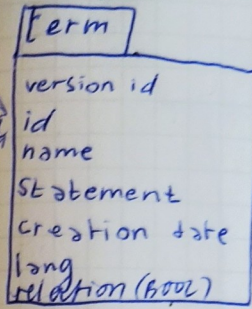 term
version id
id
name
statement
creation date
lang
relation (BOOL)